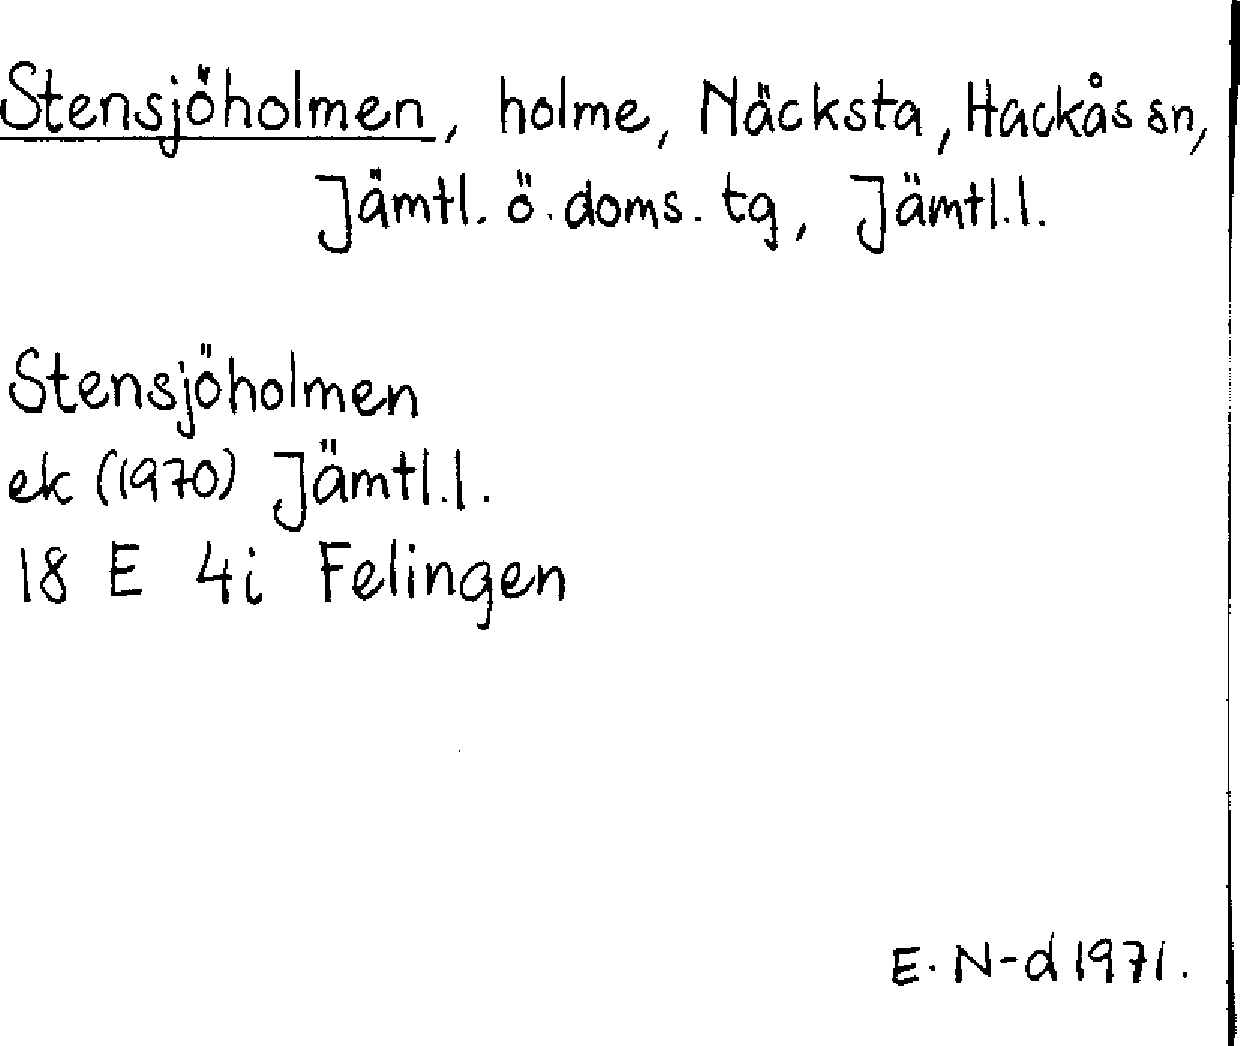 Stensjöholmen, holme, Näcksta, Hackås sn,
Jämtl. ö. doms. tg, Jämtl.l.
Stensjöholmen
ek (1970) Jämtl.l.
18 E 4i Felingen
E. N-d 1971.